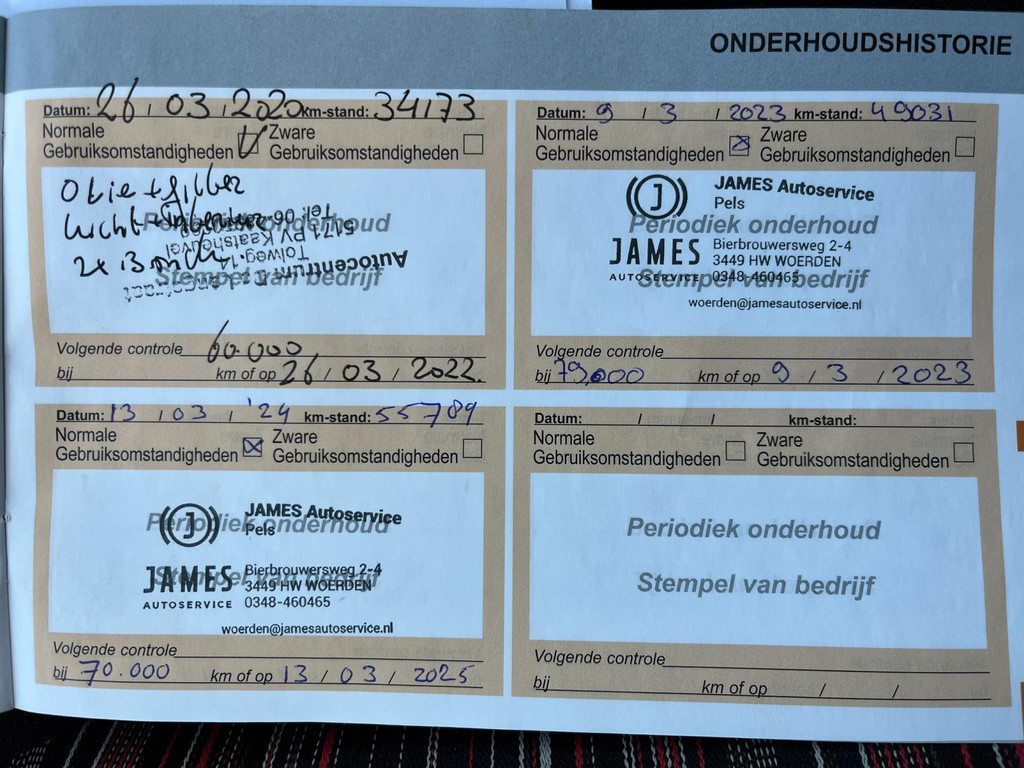 ONDERHOUDSHISTORIE
Datum: 26 / 03 / 2020 km-stand: 34173
Normale Zware
Gebruiksomstandigheden Gebruiksomstandigheden
Olie + filter
lucht
2x
Periodiek onderhoud
Stempel van bedrijf
Autocentrum
Tolweg 14
5171 PV Kaatsheuvel
Tel. 06
Volgende controle 60.000
bij km of op 26 / 03 / 2022.
Datum: 9 / 3 / 2023 km-stand: 49031
Normale Zware
Gebruiksomstandigheden Gebruiksomstandigheden
JAMES Autoservice
Pels
Periodiek onderhoud
JAMES Bierbrouwersweg 2-4
3449 HW WOERDEN
AUTOSERVICE 0348-460465
Stempel van bedrijf
woerden@jamesautoservice.nl
Volgende controle
bij 79.000 km of op 9 / 3 / 2023
Datum: 13 / 03 / '24 km-stand: 55789
Normale Zware
Gebruiksomstandigheden Gebruiksomstandigheden
JAMES Autoservice
Periodiek onderhoud
Pels
JAMES Bierbrouwersweg 2-4
Stempel van bedrijf
3449 HW WOERDEN
AUTOSERVICE 0348-460465
woerden@jamesautoservice.nl
Volgende controle
bij 70.000 km of op 13 / 03 / 2025
Datum: / / km-stand:
Normale Zware
Gebruiksomstandigheden Gebruiksomstandigheden
Periodiek onderhoud
Stempel van bedrijf
Volgende controle
bij km of op / /